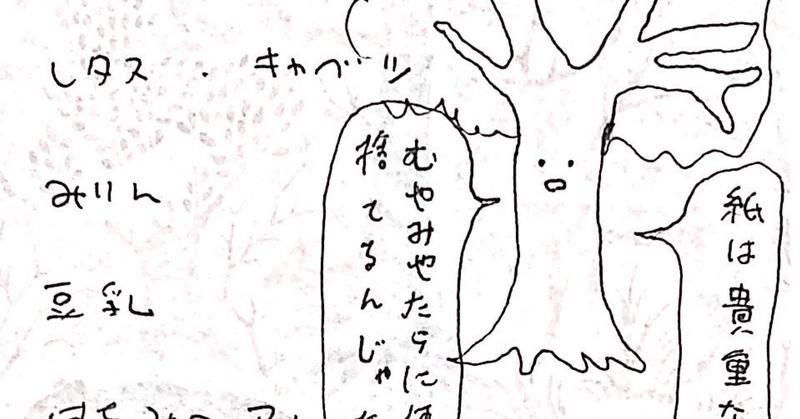 レタス ・ キャベツ
みりん
豆乳
紙は貴重な
むやみやたらに使
捨てるんじゃな